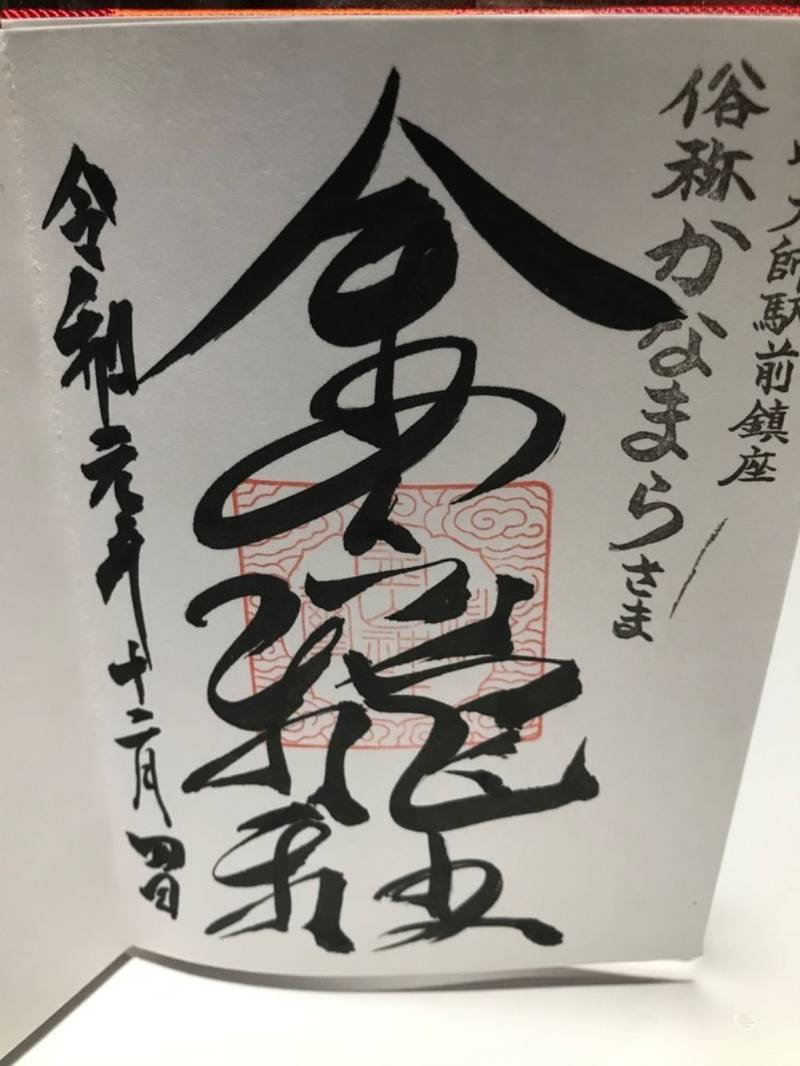 大師駅前鎮座
俗称かなまらさま
金山神社
令和元年十二月四日